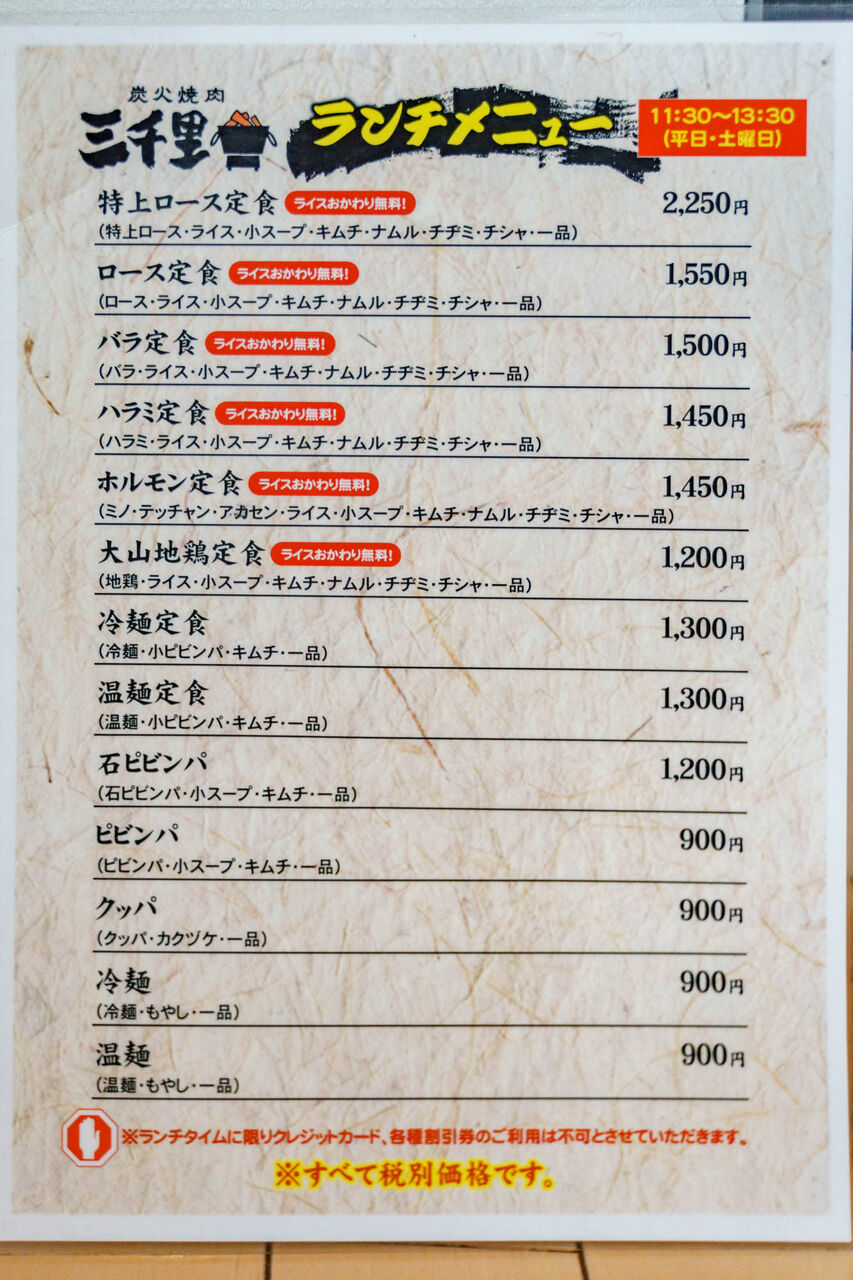 炭火焼肉
三千里
ランチメニュー
11:30〜13:30
(平日・土曜日)
特上ロース定食 ライスおかわり無料! 2,250円
(特上ロース・ライス・小スープ・キムチ・ナムル・チヂミ・チシャ・一品)
ロース定食 ライスおかわり無料! 1,550円
(ロース・ライス・小スープ・キムチ・ナムル・チヂミ・チシャ・一品)
バラ定食 ライスおかわり無料! 1,500円
(バラ・ライス・小スープ・キムチ・ナムル・チヂミ・チシャ・一品)
ハラミ定食 ライスおかわり無料! 1,450円
(ハラミ・ライス・小スープ・キムチ・ナムル・チヂミ・チシャ・一品)
ホルモン定食 ライスおかわり無料! 1,450円
(ミノ・テッチャン・アカセン・ライス・小スープ・キムチ・ナムル・チヂミ・チシャ・一品)
大山地鶏定食 ライスおかわり無料! 1,200円
(地鶏・ライス・小スープ・キムチ・ナムル・チヂミ・チシャ・一品)
冷麺定食 1,300円
(冷麺・小ピビンパ・キムチ・一品)
温麺定食 1,300円
(温麺・小ピビンパ・キムチ・一品)
石ピビンパ 1,200円
(石ピビンパ・小スープ・キムチ・一品)
ピビンパ 900円
(ピビンパ・小スープ・キムチ・一品)
クッパ 900円
(クッパ・カクヅケ・一品)
冷麺 900円
(冷麺・もやし・一品)
温麺 900円
(温麺・もやし・一品)
※ランチタイムに限りクレジットカード、各種割引券のご利用は不可とさせていただきます。
※すべて税別価格です。